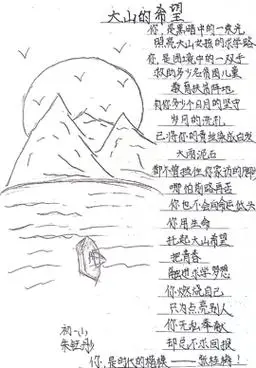 大山的希望
你,是黑暗中的一束光
照亮大山女孩的求学路
你,是困境中的一双手
救助多少贫困儿童
教育扶贫阵地
有你多少个日月的坚守
岁月的洗礼
已将你的青丝染成白发
大雨泥石
都不曾拦住你家访的脚步
哪怕前路再苦
你也不会向命运低头
你用生命
托起大山希望
把青春
融进求学梦想
你燃烧自己
只为点亮别人
你无私奉献
却总不求回报
你,是时代的楷模——张桂梅!
初一